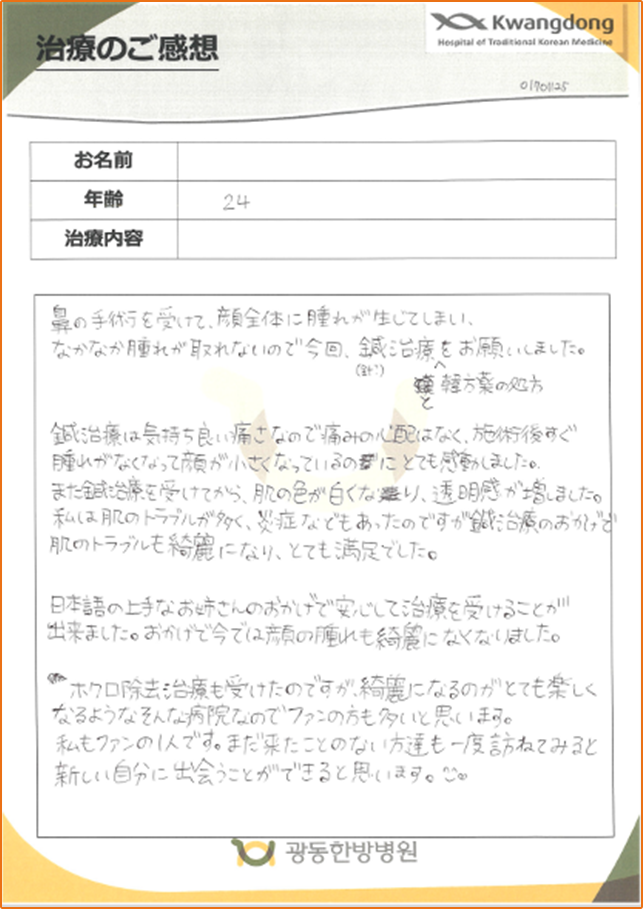 治療のご感想
Kwangdong
Hospital of Traditional Korean Medicine
01701125
お名前
年齢 24
治療内容
鼻の手術を受けて、顔全体に腫れが生じてしまい、
なかなか腫れが取れないので今回、鍼治療をお願いしました。
(針)
と 韓方薬の処方
鍼治療は気持ち良い痛さなので痛みの心配はなく、施術後すぐ
腫れがなくなって顔が小さくなっているのにとても感動しました。
また鍼治療を受けてから、肌の色が白くなり、透明感が増しました。
私は肌のトラブルが多く、炎症などもあったのですが鍼治療のおかげで
肌のトラブルも綺麗になり、とても満足でした。
日本語の上手なお姉さんのおかげで安心して治療を受けることが
出来ました。おかげで今では顔の腫れも綺麗になくなりました。
ホクロ除去治療も受けたのですが、綺麗になるのがとても楽しく
なるようなそんな病院なのでファンの方も多いと思います。
私もファンの1人です。まだ来たことのない方達も一度訪ねてみると
新しい自分に出会うことができると思います。
광동한방병원